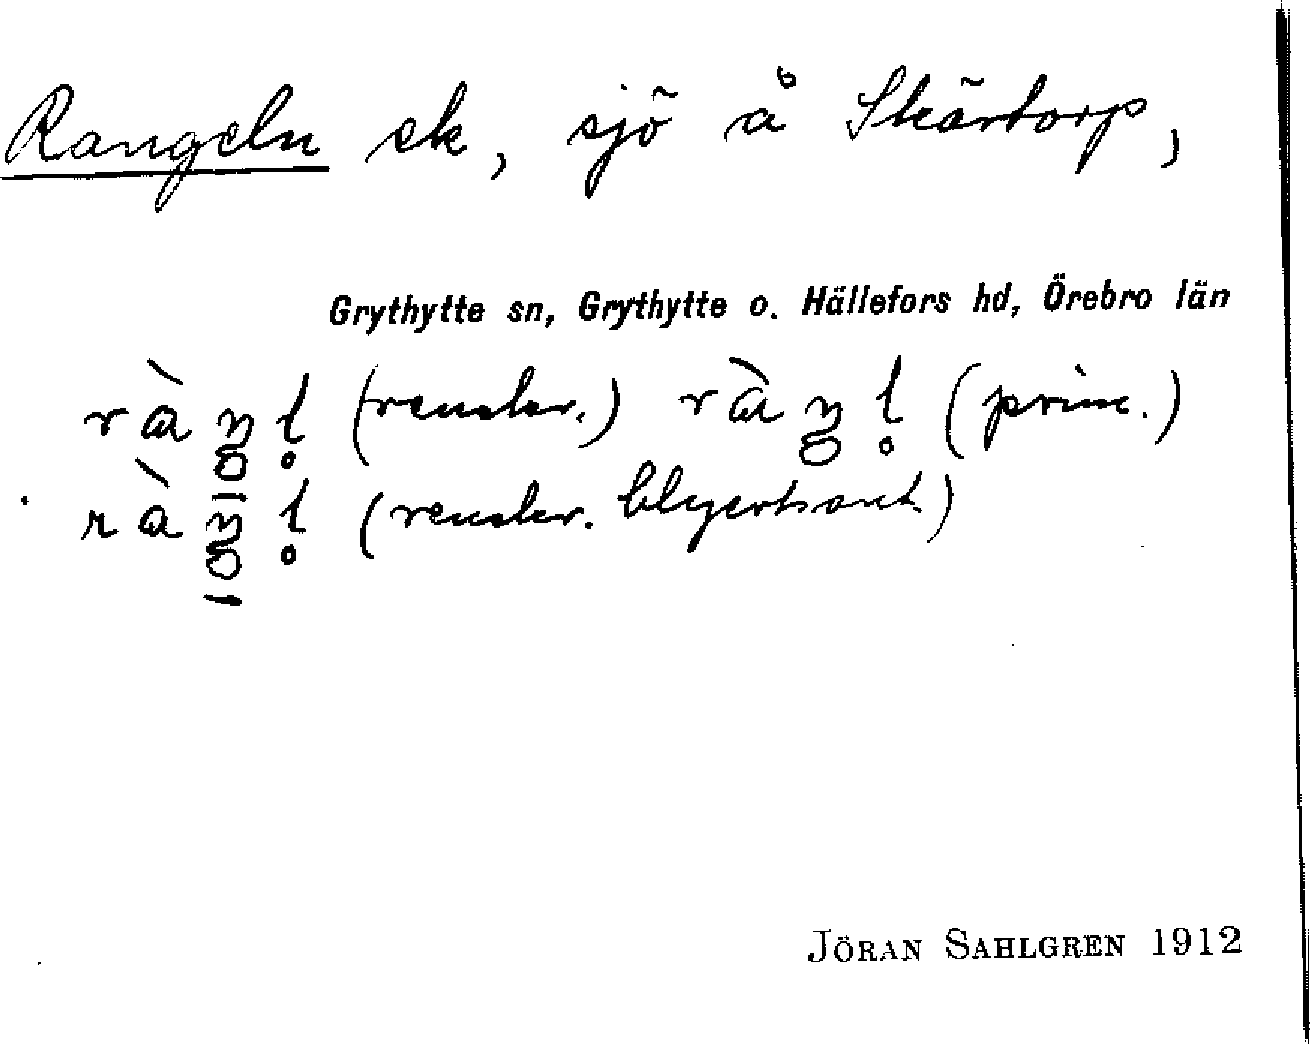 Rangeln ek, sjö å Skärtorp,
Grythytte sn, Grythytte o. Hällefors hd, Örebro län
ràŋl̥ (renskr.) ràŋl̥ (prim.)
ràŋl̥ (renskr. blyertsant.)
JÖRAN SAHLGREN 1912